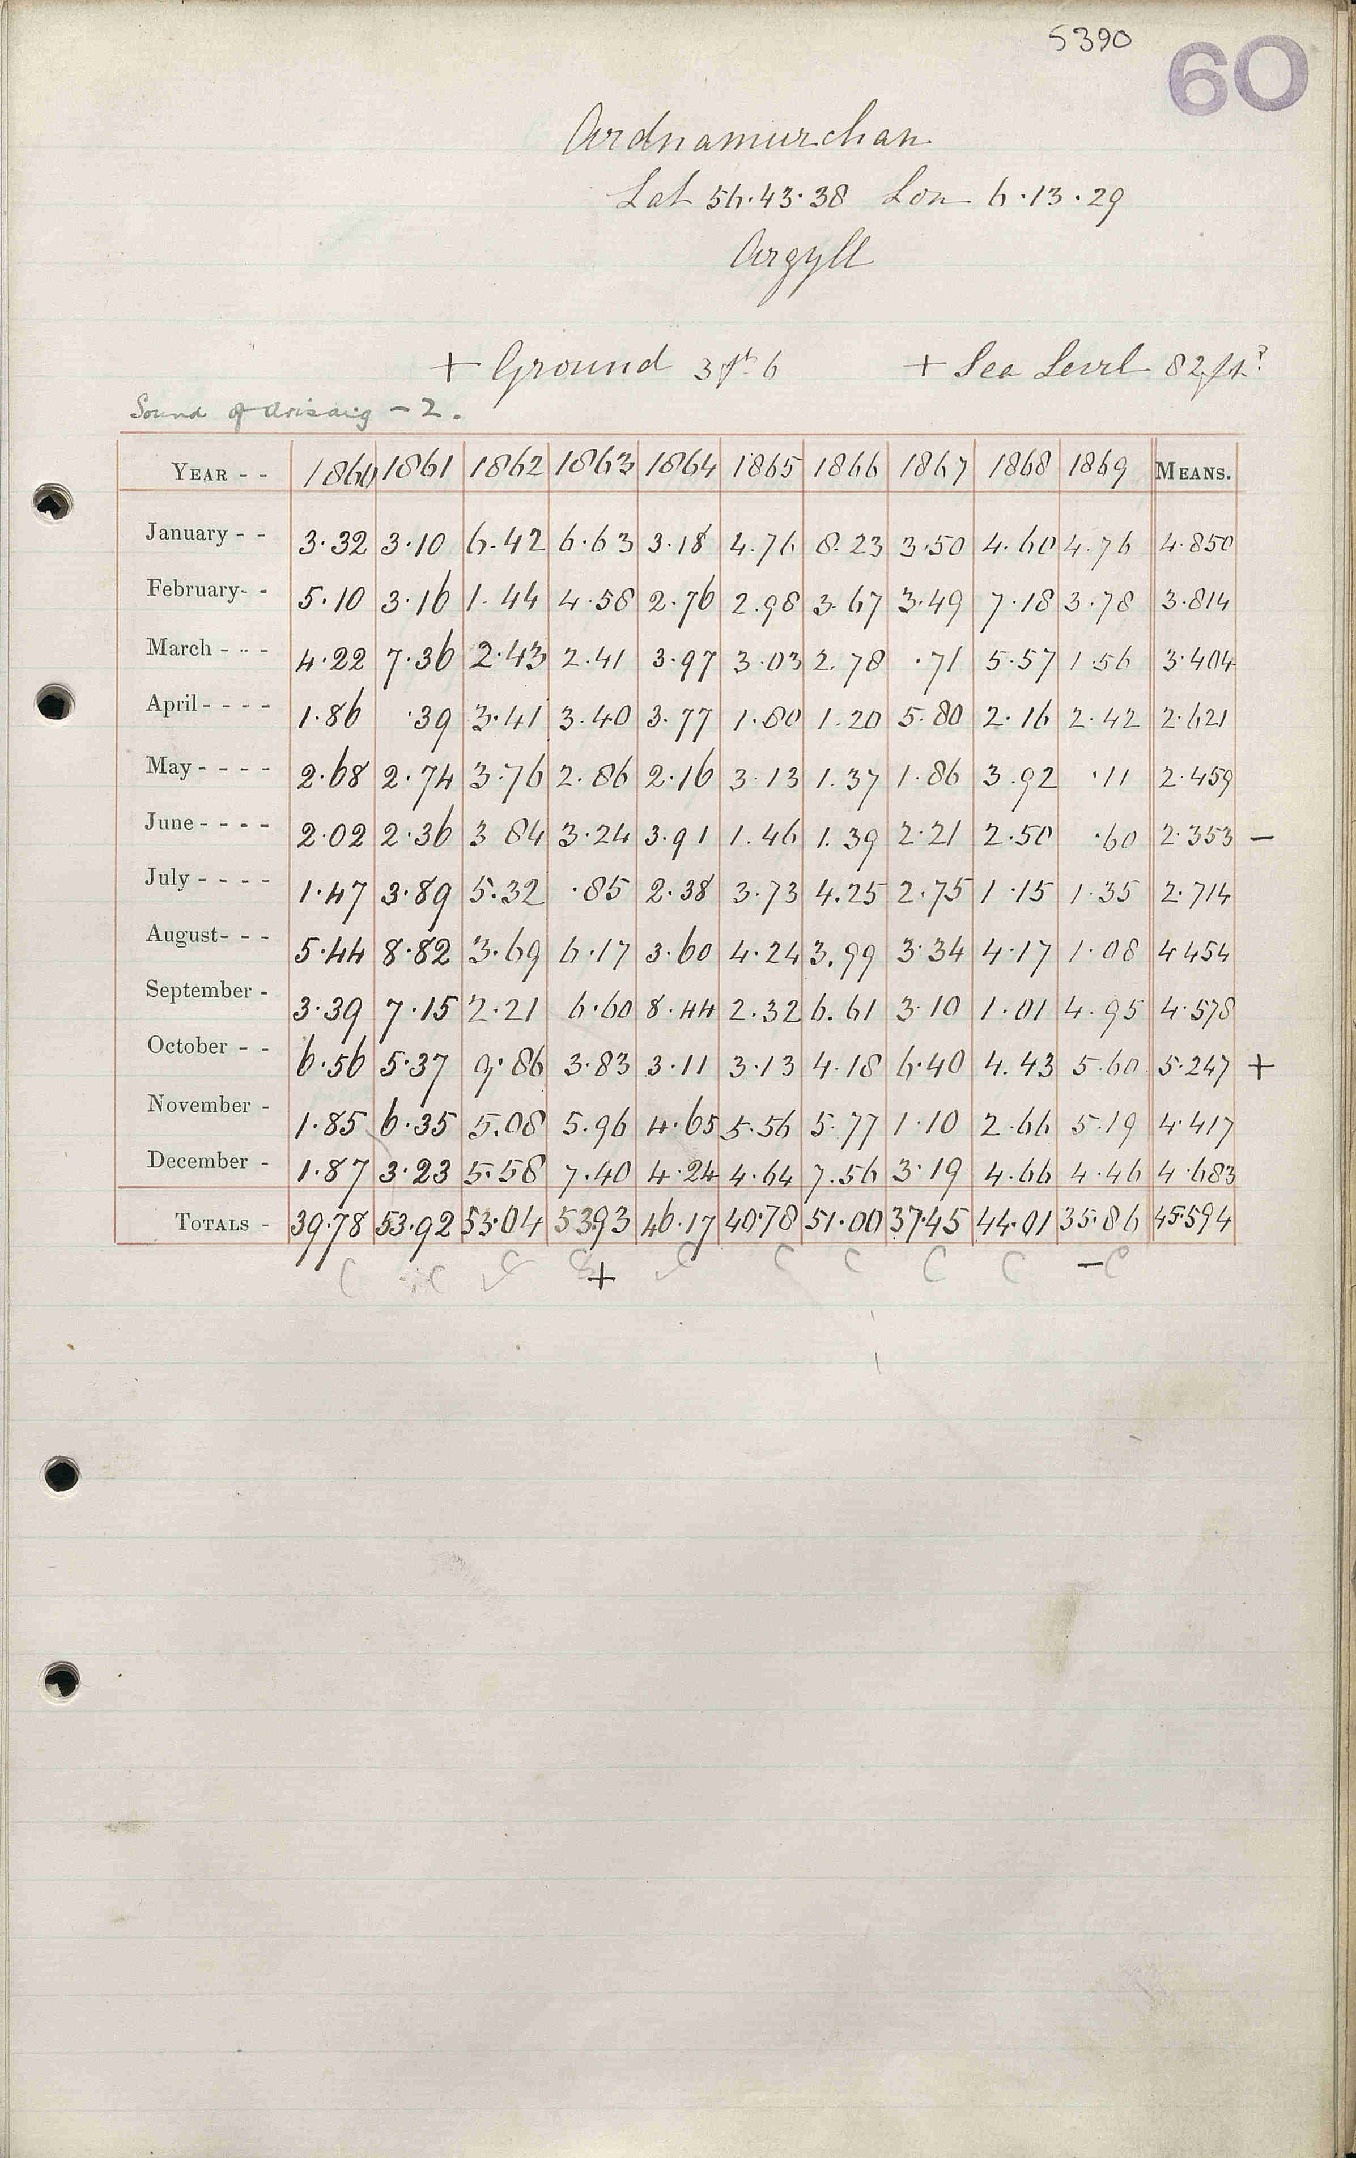 5390
60
Ardnamurchan
Lat 56.43.38 Lon 6.13.29
Argyll
+ Ground 3ft. 6 + Sea Level 82ft?
Sound of Arisaig - 2.
YEAR - - 1860 1861 1862 1863 1864 1865 1866 1867 1868 1869 MEANS.
January - - 3.32 3.10 6.42 6.63 3.18 4.76 8.23 3.50 4.60 4.76 4.850
February- - 5.10 3.16 1.44 4.58 2.76 2.98 3.67 3.49 7.18 3.78 3.814
March - - - 4.22 7.36 2.43 2.41 3.97 3.03 2.78 .71 5.57 1.56 3.404
April - - - - 1.86 .39 3.41 3.40 3.77 1.80 1.20 5.80 2.16 2.42 2.621
May - - - - 2.68 2.74 3.76 2.86 2.16 3.13 1.37 1.86 3.92 .11 2.459
June - - - - 2.02 2.36 3.84 3.24 3.91 1.46 1.39 2.21 2.50 .60 2.353 -
July - - - - 1.47 3.89 5.32 .85 2.38 3.73 4.25 2.75 1.15 1.35 2.714
August- - - 5.44 8.82 3.69 6.17 3.60 4.24 3.99 3.34 4.17 1.08 4.454
September - 3.39 7.15 2.21 6.60 8.44 2.32 6.61 3.10 1.01 4.95 4.578
October - - 6.56 5.37 9.86 3.83 3.11 3.13 4.18 6.40 4.43 5.60 5.247 +
November - 1.85 6.35 5.08 5.96 4.65 5.56 5.77 1.10 2.66 5.19 4.417
December - 1.87 3.23 5.58 7.40 4.24 4.64 7.56 3.19 4.66 4.46 4.683
TOTALS - 39.78 53.92 53.04 53.93 46.17 40.78 51.00 37.45 44.01 35.86 45.594
C C C C + C C C C C - C